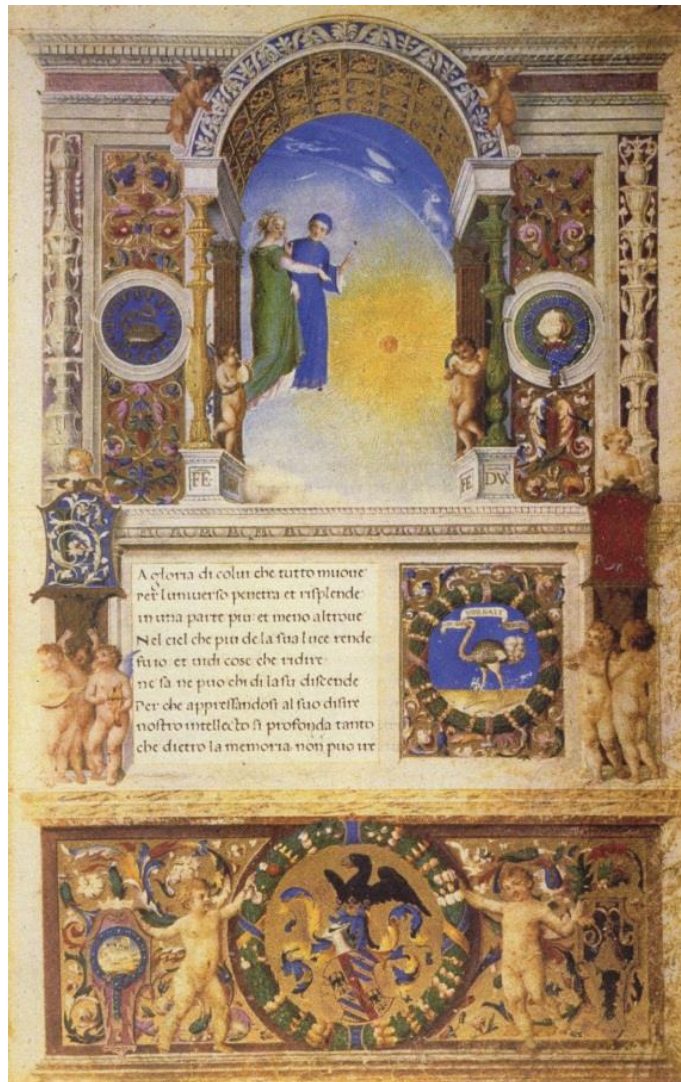 FE
FE DVX
A gloria di colui che tutto muoue
per luniuerso penetra et risplende
in una parte piu et meno altroue
Nel ciel che piu de la sua luce rende
fu io et uidi cose che ridire
ne sa ne puo chi di la su discende
Per che appressandosi al suo disire
nostro intellecto si profonda tanto
che dietro la memoria non puo ire